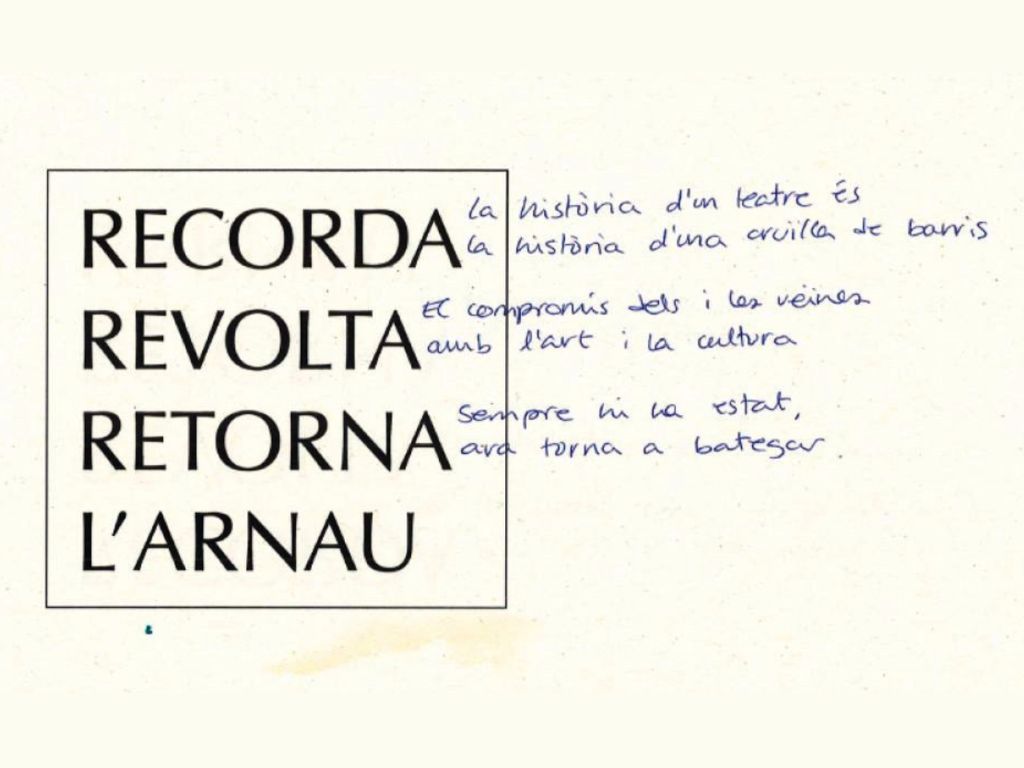 RECORDA
la història d'un teatre és
la història d'una cruïlla de barris
REVOLTA
El compromís dels i les veïnes
amb l'art i la cultura
RETORNA
Sempre hi ha estat,
ara torna a bategar.
L'ARNAU